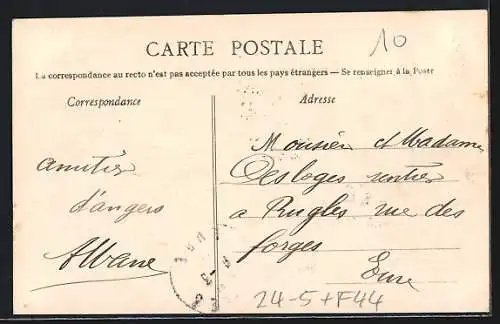 CARTE POSTALE
10
La correspondance au recto n'est pas acceptée par tous les pays étrangers — Se renseigner à la Poste
Correspondance
Adresse
amitiés
d'angers
Albane
Monsieur et Madame
Desloges rentier
a Rugles rue des
forges
Eure
24-5+F44